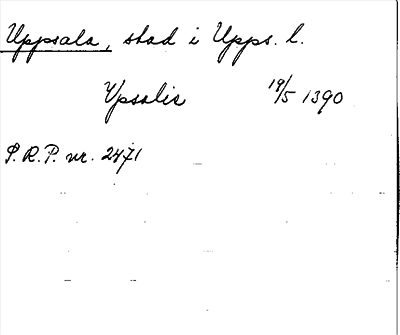 Uppsala, stad i Upps. l.
Ypsalis 19/5 1390
S.R.P. nr. 2471